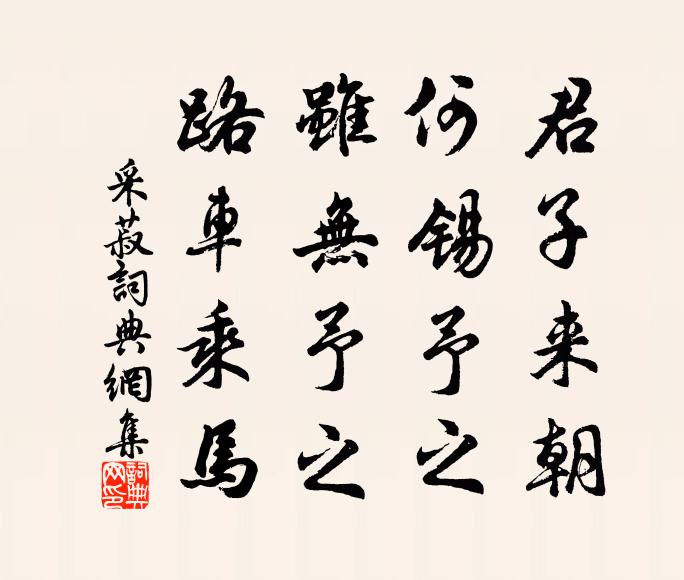 君子来朝
何錫予之
雖無予之
路車乘馬
采菽詞典網集
詞典网印